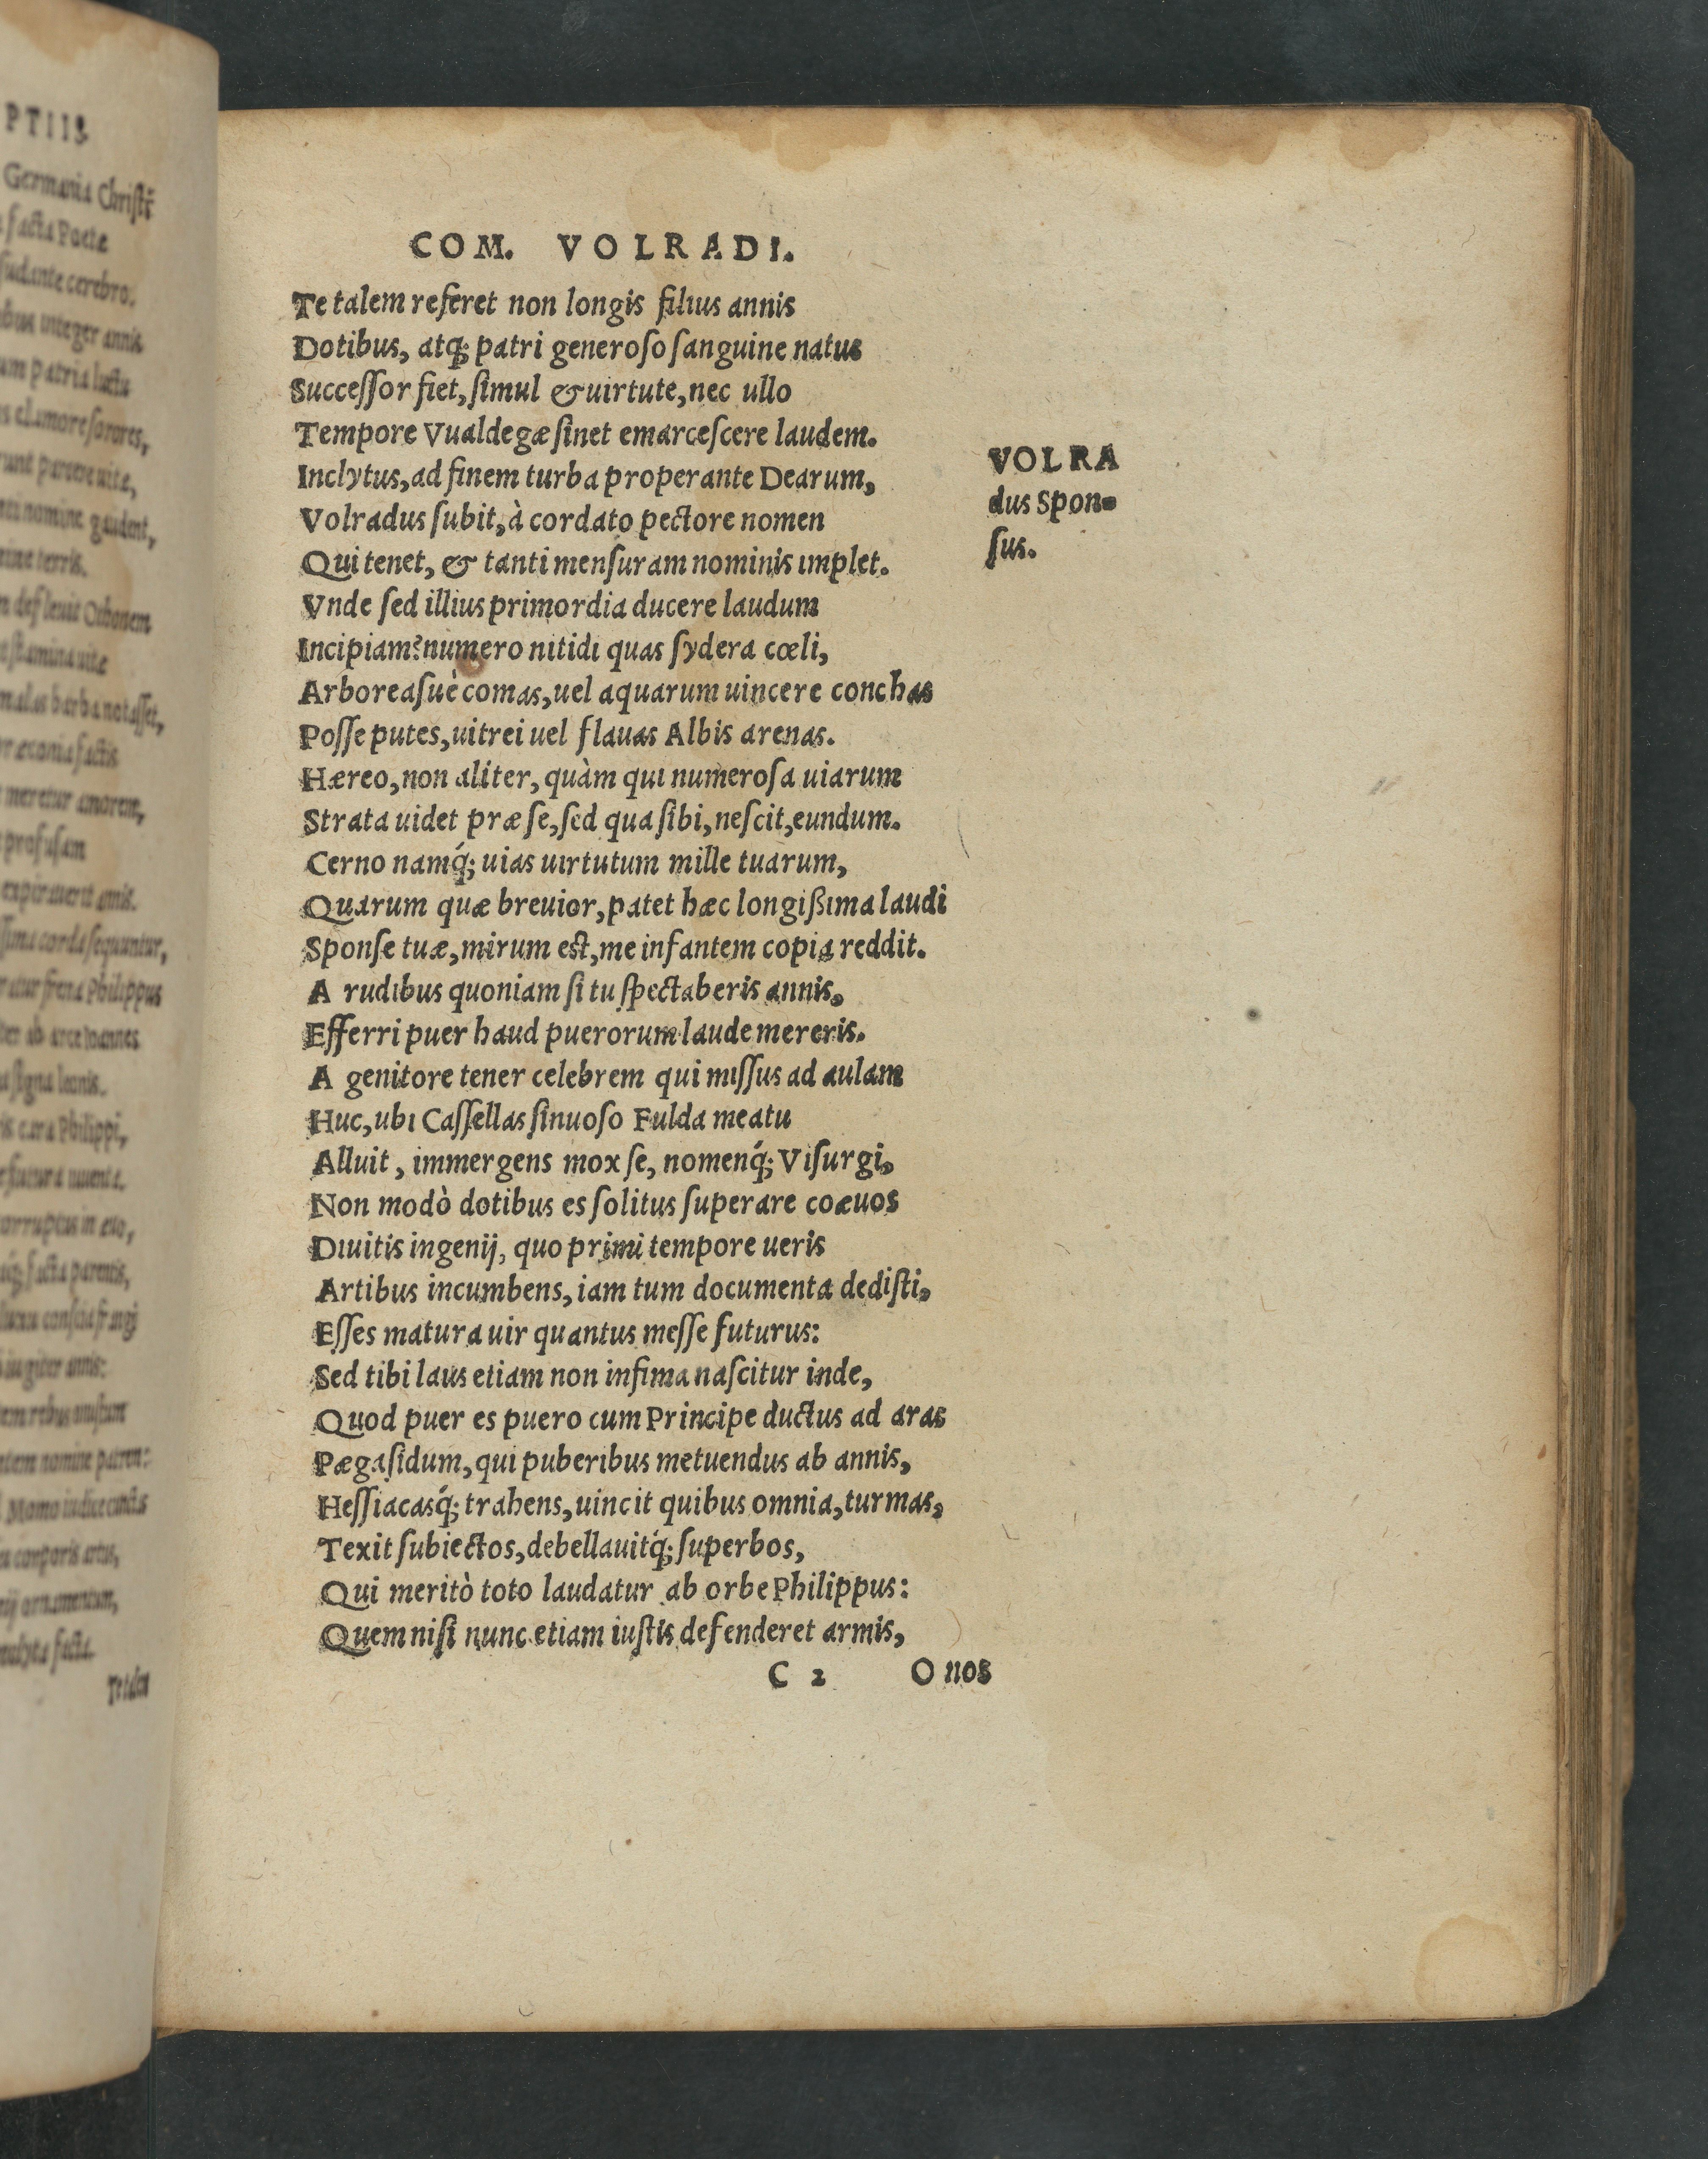 PTIIS
Germania Christi
facta Poetæ
sudante cerebro.
integer annis
patria
clamore sorores,
nomine gaudent,
terris.
Othonem
barba notasset,
meretur amorem,
profusam
corda sequuntur,
frena Philippus
ab arce Ioannes
signa leonis.
cara Philippi,
facta parentis,
annis:
nomine
Momo iudice
corporis
facta.
COM. VOLRADI.
Te talem referet non longis filius annis
Dotibus, atq́; patri generoſo ſanguine natus
Succeſſor fiet, ſimul & uirtute, nec ullo
Tempore Vualdegæ ſinet emarceſcere laudem.
Inclytus, ad finem turba properante Dearum,
Volradus ſubit, à cordato pectore nomen
Qui tenet, & tanti menſuram nominis implet.
Vnde ſed illius primordia ducere laudum
Incipiam? numero nitidi quas ſydera cœli,
Arboreaſuè comas, uel aquarum uincere conchas
Poſſe putes, uitrei uel flauas Albis arenas.
Hæreo, non aliter, quàm qui numeroſa uiarum
Strata uidet præ ſe, ſed qua ſibi, neſcit, eundum.
Cerno namq́; uias uirtutum mille tuarum,
Quarum quæ breuior, patet hæc longißima laudi
Sponſe tuæ, mirum eſt, me infantem copia reddit.
A rudibus quoniam ſi tu ſpectaberis annis,
Efferri puer haud puerorum laude mereris.
A genitore tener celebrem qui miſſus ad aulam
Huc, ubi Caſſellas ſinuoſo Fulda meatu
Alluit, immergens mox ſe, nomenq́; Viſurgi,
Non modò dotibus es ſolitus ſuperare coæuos
Diuitis ingenij, quo primi tempore ueris
Artibus incumbens, iam tum documenta dediſti,
Eſſes matura uir quantus meſſe futurus:
Sed tibi laus etiam non infima naſcitur inde,
Quod puer es puero cum Principe ductus ad aras
Pægaſidum, qui puberibus metuendus ab annis,
Heſſiacasq́; trahens, uincit quibus omnia, turmas,
Texit ſubiectos, debellauitq́; ſuperbos,
Qui meritò toto laudatur ab orbe Philippus:
Quem niſi nunc etiam iuſtis defenderet armis,
C 2 O nos
VOLRA
dus Spon-
ſus.